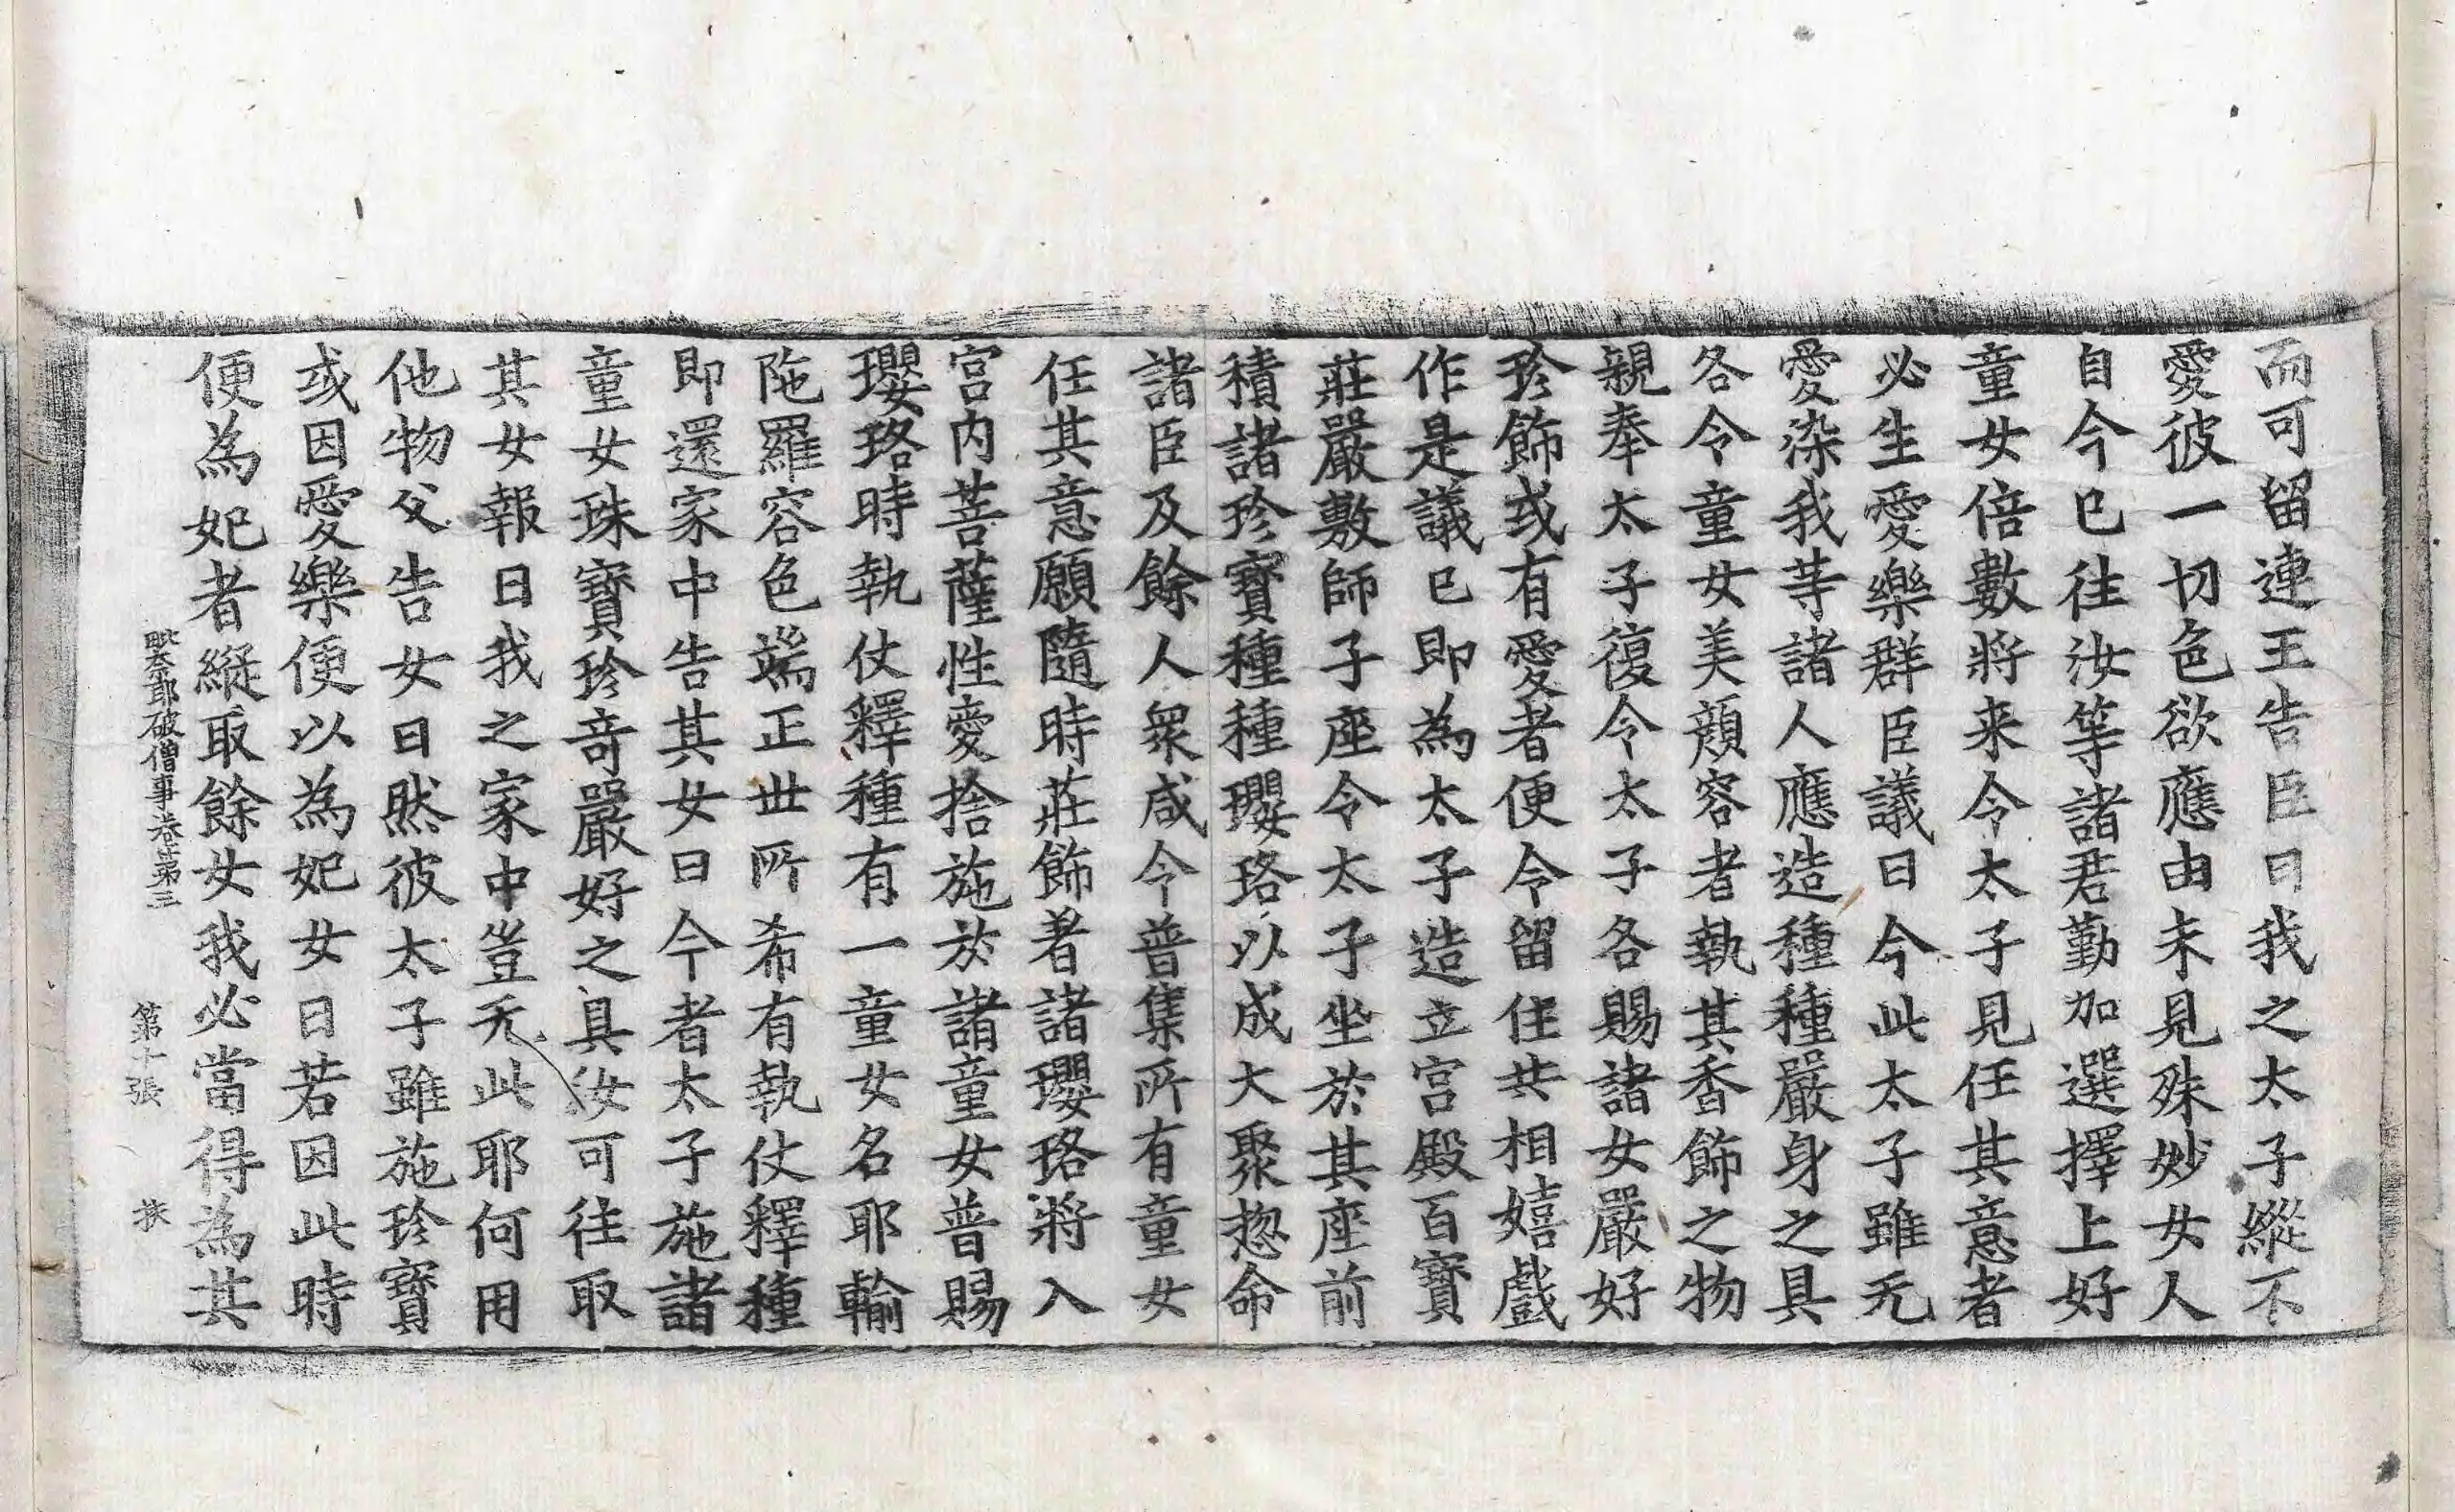 而可留連王告臣曰我之太子縱不
愛彼一切色欲應由未見殊妙女人
自今已往汝等諸君勤加選擇上好
童女倍數將来令太子見任其意者
必生愛樂群臣議曰今此太子雖无
愛染我等諸人應造種種嚴身之具
各令童女美顔容者執其香飾之物
親奉太子復令太子各賜諸女嚴好
珍飾或有愛者便令留住共相嬉戲
作是議已即為太子造立宮殿百寶
莊嚴敷師子座令太子坐於其座前
積諸珍寶種種瓔珞以成大聚惣命
諸臣及餘人衆咸令普集所有童女
任其意願隨時莊飾著諸瓔珞將入
宮内菩薩性愛捨施於諸童女普賜
瓔珞時執仗釋種有一童女名耶輸
陁羅容色端正丗所希有執仗釋種
即還家中告其女曰今者太子施諸
童女珠寶珍竒嚴好之具汝可往取
其女報曰我之家中豈无此耶何用
他物父告女曰然彼太子雖施珍寶
或因愛樂便以為妃女曰若因此時
便為妃者縱取餘女我必當得為其
毗奈耶破僧事卷第三 第十張 挾